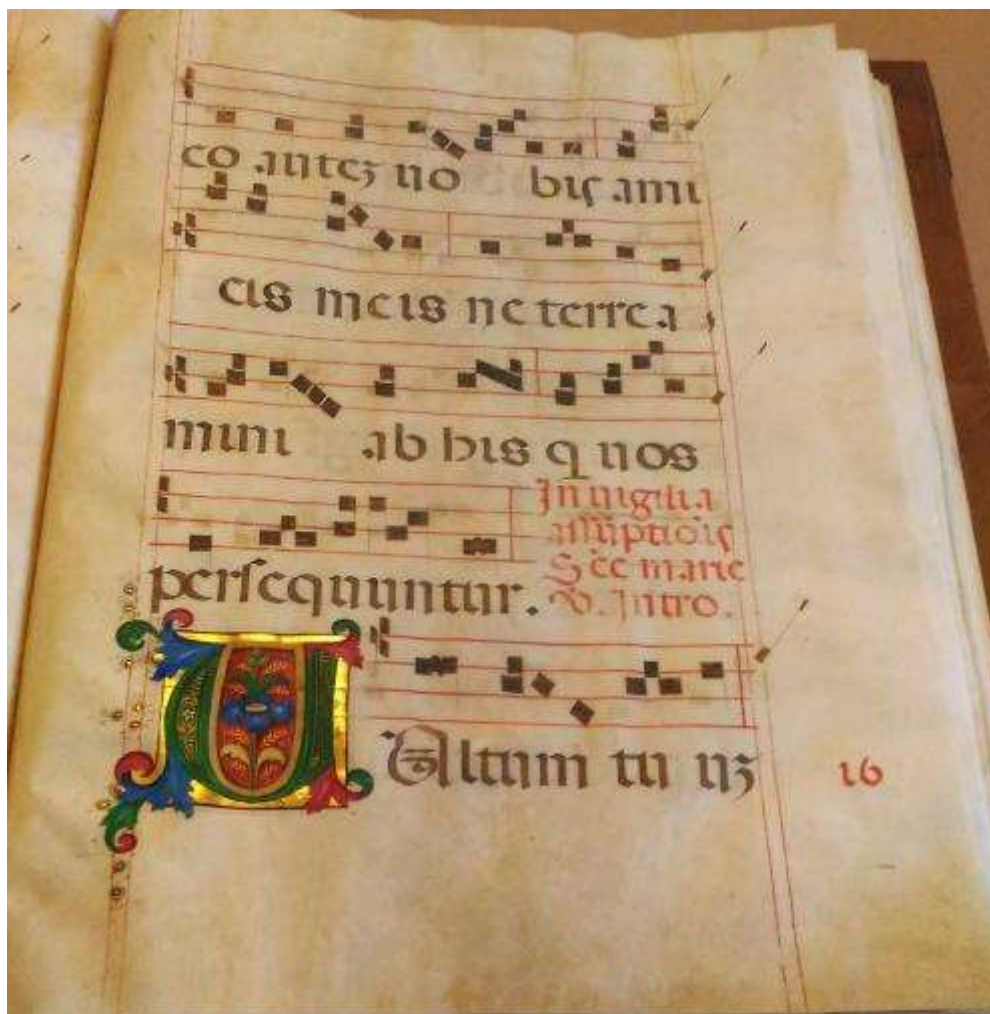 co antez no bis ami
cis meis ne terrea
mini ab his q uos
persequuntur.
In uigilia
assūptiōis
Scē marie
V. Intro.
Ultum tu uz
16